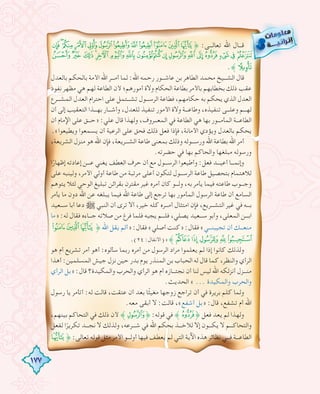 معلومات إثرائية 3
قـــال الله تعالـــى: ﴿ يَا أَيُّهَا الَّذِينَ آمَنُوا أَطِيعُوا اللَّهَ وَأَطِيعُوا الرَّسُولَ وَأُولِي الْأَمْرِ مِنكُمْ فَإِن
تَنَازَعْتُمْ فِي شَيْءٍ فَرُدُّوهُ إِلَى اللَّهِ وَالرَّسُولِ إِن كُنتُمْ تُؤْمِنُونَ بِاللَّهِ وَالْيَوْمِ الْآخِرِ ذَلِكَ خَيْرٌ وَأَحْسَنُ
تَأْوِيلًا ﴾.
قال الشـــيخ محمد الطاهر بن عاشـــور رحمه الله: لما أمـــر الله الأمة بالحكم بالعدل
عقب ذلك بخطابهم بالأمر بطاعة الحكام ولاة أمورهم؛ لأن الطاعة لهم هي مظهر نفوذ
العدل الذي يحكم به حكامهم، فطاعة الرســـول تشـــتمل على احترام العدل المشـــرع
لهـــم وعلـــى تنفيـــذه، وطاعـــة ولاة الأمور تنفيذ للعدل، وأشـــار بهـــذا التعقيـــب إلى أن
الطاعـــة المأمـــور بها هي الطاعة في المعـــروف، ولهذا قال علي: «حـــق على الإمام أن
يحكم بالعدل ويؤدي الأمانة، فإذا فعل ذلك فحق على الرعية أن يسمعوا ويطيعوا».
أمر الله بطاعة الله ورسوله وذلك بمعنى طاعة الشـــريعة، فإن الله هو منزل الشريعة،
ورسوله مبلغها والحاكم بها في حضرته.
وإنمـــا أعيـــد فعل: وأطيعوا الرسول مع أن حرف العطف يغني عـــن إعادته إظهارًا
للاهتمـــام بتحصيل طاعة الرسول لتكون أعلى مرتبة من طاعة أولي الأمر، ولينبه على
وجـــوب طاعته فيما يأمر به، ولـــو كان أمره غير مقترن بقرائن تبليغ الوحي لئلا يتوهم
السامع أن طاعة الرسول المأمور بها ترجع إلى طاعة الله فيما يبلغه عن الله دون ما يأمر
بـــه في غير التشـــريع، فإن امتثال أمـــره كله خير، ألا ترى أن النبي ﷺ دعا أبا ســـعيد
ابن المعلى، وأبو ســـعيد يصلي، فلـــم يجبه فلما فرغ من صلاته جـــاءه فقال له: «ما
منعـــك أن تجيبنـــي» فقال: «كنت أصلي» فقال: «ألم يقل الله ﴿ يَا أَيُّهَا الَّذِينَ آمَنُوا
اسْتَجِيبُوا لِلَّهِ وَلِلرَّسُولِ إِذَا دَعَاكُمْ ﴾ [الأنفال: ٢٤]».
ولذلك كانوا إذا لم يعلموا مراد الرسول من أمره ربما سألوه: أهو أمر تشريع أم هو
الرأي والنظر، كما قال له الحباب بن المنذر يوم بدر حين نزل جيش المسلمين: أهذا
منـــزل أنزلكه الله ليس لنا أن نجتـــازه أم هو الرأي والحرب والمكيدة؟ قال: «بل الرأي
والحرب والمكيدة ... » الحديث.
ولما كلم بريرة في أن تراجع زوجها مغيثًا بعد أن عتقت، قالت له: أتأمر يا رسول
الله أم تشفع، قال: «بل أشفع»، قالت: لا أبقى معه.
ولهـــذا لم يعد فعل ﴿ فَرُدُّوهُ ﴾ في قوله: ﴿ وَالرَّسُولِ ﴾ لأن ذلك في التحاكم بينهم،
والتحاكـــم لا يكـــون إلا للأخـــذ بحكم الله في شـــرعه، ولذلك لا نجـــد تكريرًا لفعل
الطاعـــة فـــي نظائر هذه الآية التي لم يعطف فيها أولـــو الأمر مثل قوله تعالى: ﴿ يَا أَيُّهَا
١٧٧